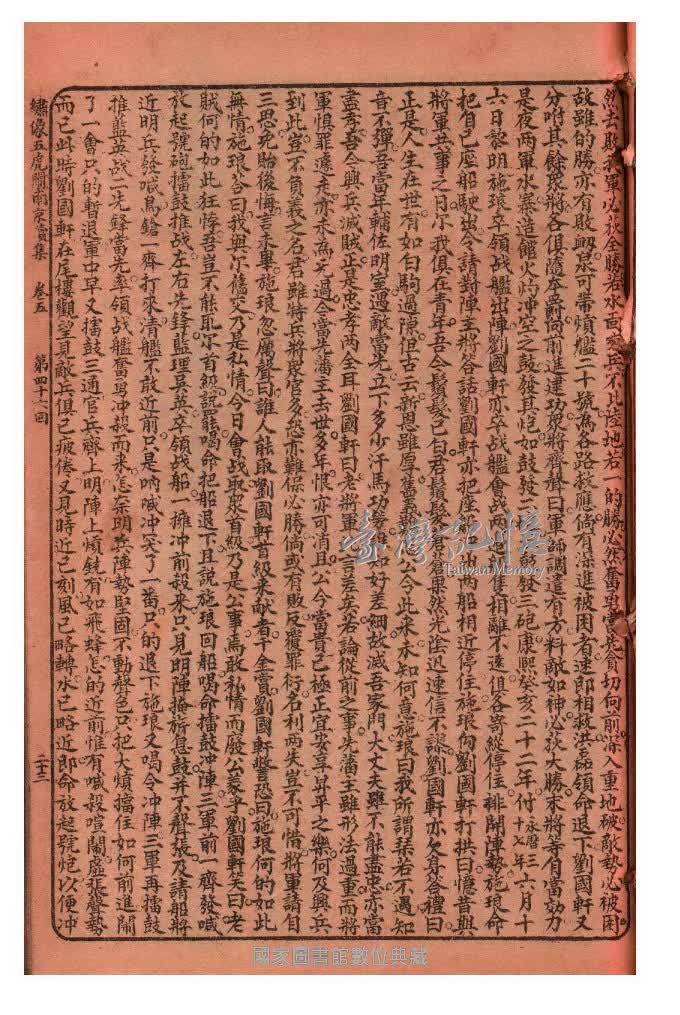 然去敗我軍必獲全勝若水面交兵不比陸地若一的勝必然奮勇當先貪切向前深入重地破敵勢必被困
故雖的勝亦有敗劉泉可帶煩艦二十號為各路救應倘有深進被困者速即相救洪磊領命退下劉國軒又
分咐其餘眾將各俱隨卒爵向前進建功眾將齊聲曰軍師調遣有方料敵如神必獲大勝末將等有當効力
是夜兩軍水寨造館火灼沖空之鼓發其炮如鼓發二鼓發三砲康熙癸亥二十二年付永曆三十七年六月十
六日黎明施琅卒領战艦出陣劉國軒亦卒战艦會战兩隻相離不遠俱各寄碇停住排開陣勢施琅命
把自己座船駛出令請對陣主將答話劉國軒亦把座船兩船相近停住施琅向劉國軒打拱曰憶昔與
將軍共事之日尓我俱在青年吾今鬚髮已白君鬚髮蒼果然光陰迅速信不謬劉國軒亦欠身答禮曰
正是人生在世有如白駒過隙但古云新恩雖厚舊義公今此来未知何意施琅曰我所謂琴若不遇知
音不彈吾當年輔佐明室遇敵當先立下多少汗馬功勞和好差細故滅吾家門大丈夫雖不能盡忠亦當
盡孝吾今興兵滅賊正是忠孝两全耳劉國軒曰老將軍言差矣若論從前之事先藩主雖形法過重而將
軍惧罪遠走亦未為先過今當先藩主去世多年恨亦可消且公今當貴已極正宜安享昇平之樂何及興兵
到此豈不負義之名君雖特兵將眾官多怨亦難保必勝倘或有敗反覆罪衍名利两失豈不可惜將軍請自
三思免貽後悔言未畢施琅忽厲聲曰誰人能取劉國軒首級来献者千金賞劉國軒警恐曰施琅何的如此
無情施琅答曰我與尓舊交乃是私情今日會战取眾首級乃是公事焉敢私情而廢公蒙乎劉國軒笑曰老
賊何的如此狂悖吾豈不能取尓首級說罷喝命把船退下且說施琅回船喝命擂鼓冲陣三軍前一齊發喊
放起號砲擂鼓推战左右先鋒藍理吳英卒領战船一擁冲前殺来只見明陣掩旂息鼓并不聲張及請船將
近明兵發喊鳥鎗一齊打來清艦不敢近前只是吶喊冲突了一番只的退下施琅又喝令冲陣三軍再擂鼓
推藍英战一先鋒當先率領战艦奮勇冲殺而来怎奈明兵陣勢堅固不動聲色只把大煩擋住如何前進鬧
了一會只的暫退軍中早又擂鼓三通官兵齊上明陣上煩銃有如飛蜂怎的近前惟有喊殺喧鬧虛張聲勢
而已此時劉國軒在尾樓觀望見敵兵俱已疲倦又見時近巳刻風已略轉水已略近即命放起號炮以便冲
繡像五虎鬧南京實集　卷五　第四十六回　二十三
臺灣記憶
Taiwan Memory
國家圖書館數位典藏